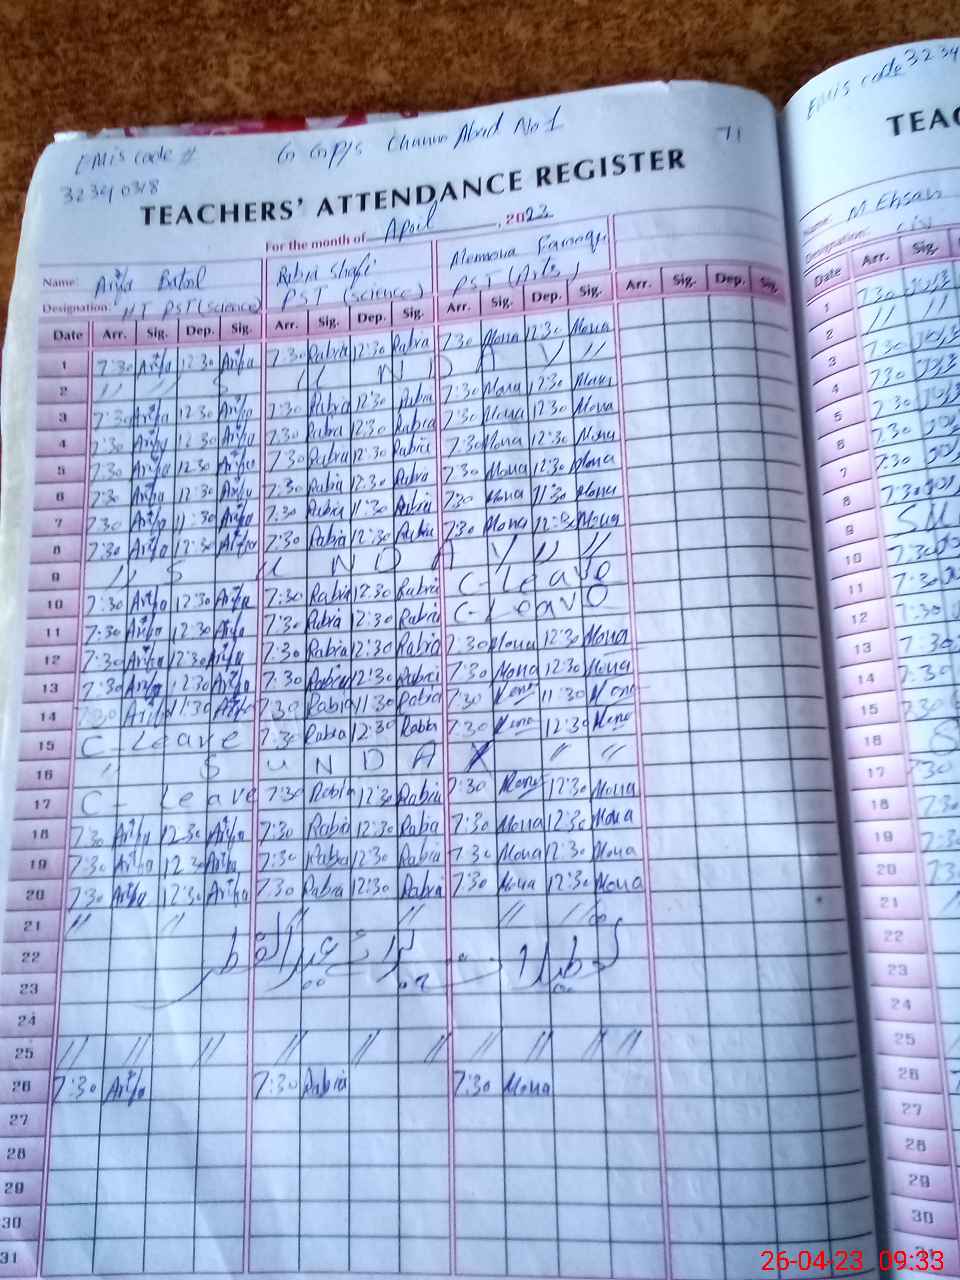 EMis code # G GP/S Channu Abad No 1 71
32340318
TEACHERS' ATTENDANCE REGISTER
For the month of April, 2023
Name: Arifa Batool Rabia Shafi
Designation: HT PST (science) PST (science) PST (Arts)
Date Arr. Sig. Dep. Sig. Arr. Sig. Dep. Sig. Arr. Sig. Dep. Sig. Arr. Sig. Dep. Sig.
1 7:30 Arifa 12:30 Arifa 7:30 Rabia 12:30 Rabia 7:30 Mona 12:30 Mona
2 // // S U N D A Y //
3 7:30 Arifa 12:30 Arifa 7:30 Rabia 12:30 Rabia 7:30 Mona 12:30 Mona
4 7:30 Arifa 12:30 Arifa 7:30 Rabia 12:30 Rabia 7:30 Mona 12:30 Mona
5 7:30 Arifa 12:30 Arifa 7:30 Rabia 12:30 Rabia 7:30 Mona 12:30 Mona
6 7:30 Arifa 12:30 Arifa 7:30 Rabia 12:30 Rabia 7:30 Mona 12:30 Mona
7 7:30 Arifa 11:30 Arifa 7:30 Rabia 11:30 Rabia 7:30 Mona 11:30 Mona
8 7:30 Arifa 12:30 Arifa 7:30 Rabia 12:30 Rabia 7:30 Mona 12:30 Mona
9 // S U N D A Y // //
10 7:30 Arifa 12:30 Arifa 7:30 Rabia 12:30 Rabia C-Leave
11 7:30 Arifa 12:30 Arifa 7:30 Rabia 12:30 Rabia C-Leave
12 7:30 Arifa 12:30 Arifa 7:30 Rabia 12:30 Rabia 7:30 Mona 12:30 Mona
13 7:30 Arifa 12:30 Arifa 7:30 Rabia 12:30 Rabia 7:30 Mona 12:30 Mona
14 7:30 Arifa 11:30 Arifa 7:30 Rabia 11:30 Rabia 7:30 Mona 11:30 Mona
15 C-Leave 7:30 Rabia 12:30 Rabia 7:30 Mona 12:30 Mona
16 // S U N D A Y // //
17 C-Leave 7:30 Rabia 12:30 Rabia 7:30 Mona 12:30 Mona
18 7:30 Arifa 12:30 Arifa 7:30 Rabia 12:30 Rabia 7:30 Mona 12:30 Mona
19 7:30 Arifa 12:30 Arifa 7:30 Rabia 12:30 Rabia 7:30 Mona 12:30 Mona
20 7:30 Arifa 12:30 Arifa 7:30 Rabia 12:30 Rabia 7:30 Mona 12:30 Mona
21 // // // // // //
22
23
24
25 // // // // // // // // // //
26 7:30 Arifa 7:30 Rabia 7:30 Mona
27
28
29
30
31
EMis code 3234
TEAC
Name: M Ehsan
Designation:
Date Arr. Sig.
1 7:30
2 // //
3 7:30
4 7:30
5 7:30
6 7:30
7 7:30
8 7:30
9 SU
10 7:30
11 7:30
12 7:30
13 7:30
14 7:30
15 7:30
16 S
17 7:30
18 7:3
19 7:3
20 7:3
21
22
23
24
25
26
27
28
29
30
31
26-04-23 09:33